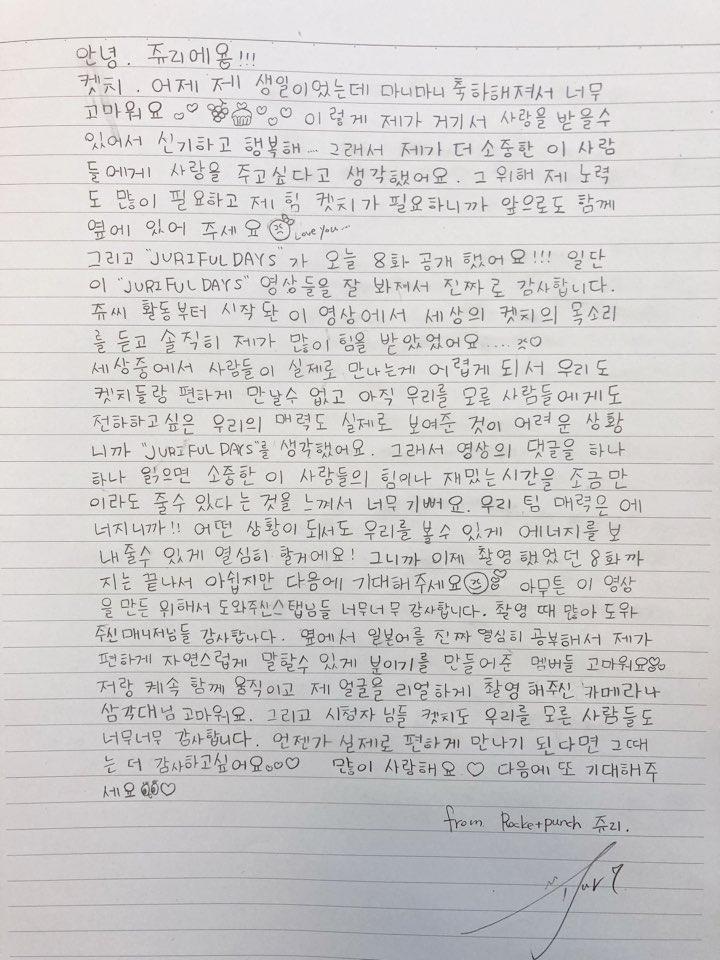 안녕. 쥬리에용!!!
켓치. 어제 제 생일이었는데 마니마니 축하해져서 너무
고마워요 이렇게 제가 거기서 사랑을 받을수
있어서 신기하고 행복해... 그래서 제가 더 소중한 이 사람
들에게 사랑을 주고싶다고 생각했어요. 그 위해 제 노력
도 많이 필요하고 제 힘 켓치가 필요하니까 앞으로도 함께
옆에 있어 주세요 Love you...
그리고 "JURIFUL DAYS"가 오늘 8화 공개했어요!!! 일단
이 "JURIFUL DAYS" 영상들을 잘 봐져서 진짜로 감사합니다.
쥬씨 활동부터 시작됀 이 영상에서 세상의 켓치의 목소리
를 듣고 솔직히 제가 많이 힘을 받았었어요....
세상중에서 사람들이 실제로 만나는게 어렵게 되서 우리도
켓치들랑 편하게 만날수 없고 아직 우리를 모른 사람들에게도
전하하고싶은 우리의 매력도 실제로 보여준 것이 어려운 상황
니까 "JURIFUL DAYS"를 생각했어요. 그래서 영상의 댓글을 하나
하나 읽으면 소중한 이 사람들의 힘이나 재밌는시간을 조금만
이라도 줄수 있다는 것을 느껴서 너무 기뻐요. 우리 팀 매력은 에
너지니까!! 어떤 상황이 되서도 우리를 볼수 있게 에너지를 보
내줄수 있게 열심히 할거에요! 그니까 이제 촬영했었던 8화까
지는 끝나서 아쉽지만 다음에 기대해주세요 아무튼 이 영상
을 만든 위해서 도와주신스탭님들 너무너무 감사합니다. 촬영 때 많아 도와
주신매니저님들 감사합니다. 옆에서 일본어를 진짜 열심히 공부해서 제가
편하게 자연스럽게 말할수 있게 분이기를 만들어준 멤버들 고마워요
저랑 케속 함께 움직이고 제 얼굴을 리얼하게 촬영해주신 카메라나
삼각대님 고마워요. 그리고 시청자 님들 켓치도 우리를 모른 사람들도
너무너무 감사합니다. 언젠가 실제로 편하게 만나기 된다면 그때
는 더 감사하고싶어요 많이 사랑해요 ♡ 다음에 또 기대해주
세요 ♡
from Rocket punch 쥬리.
Juri